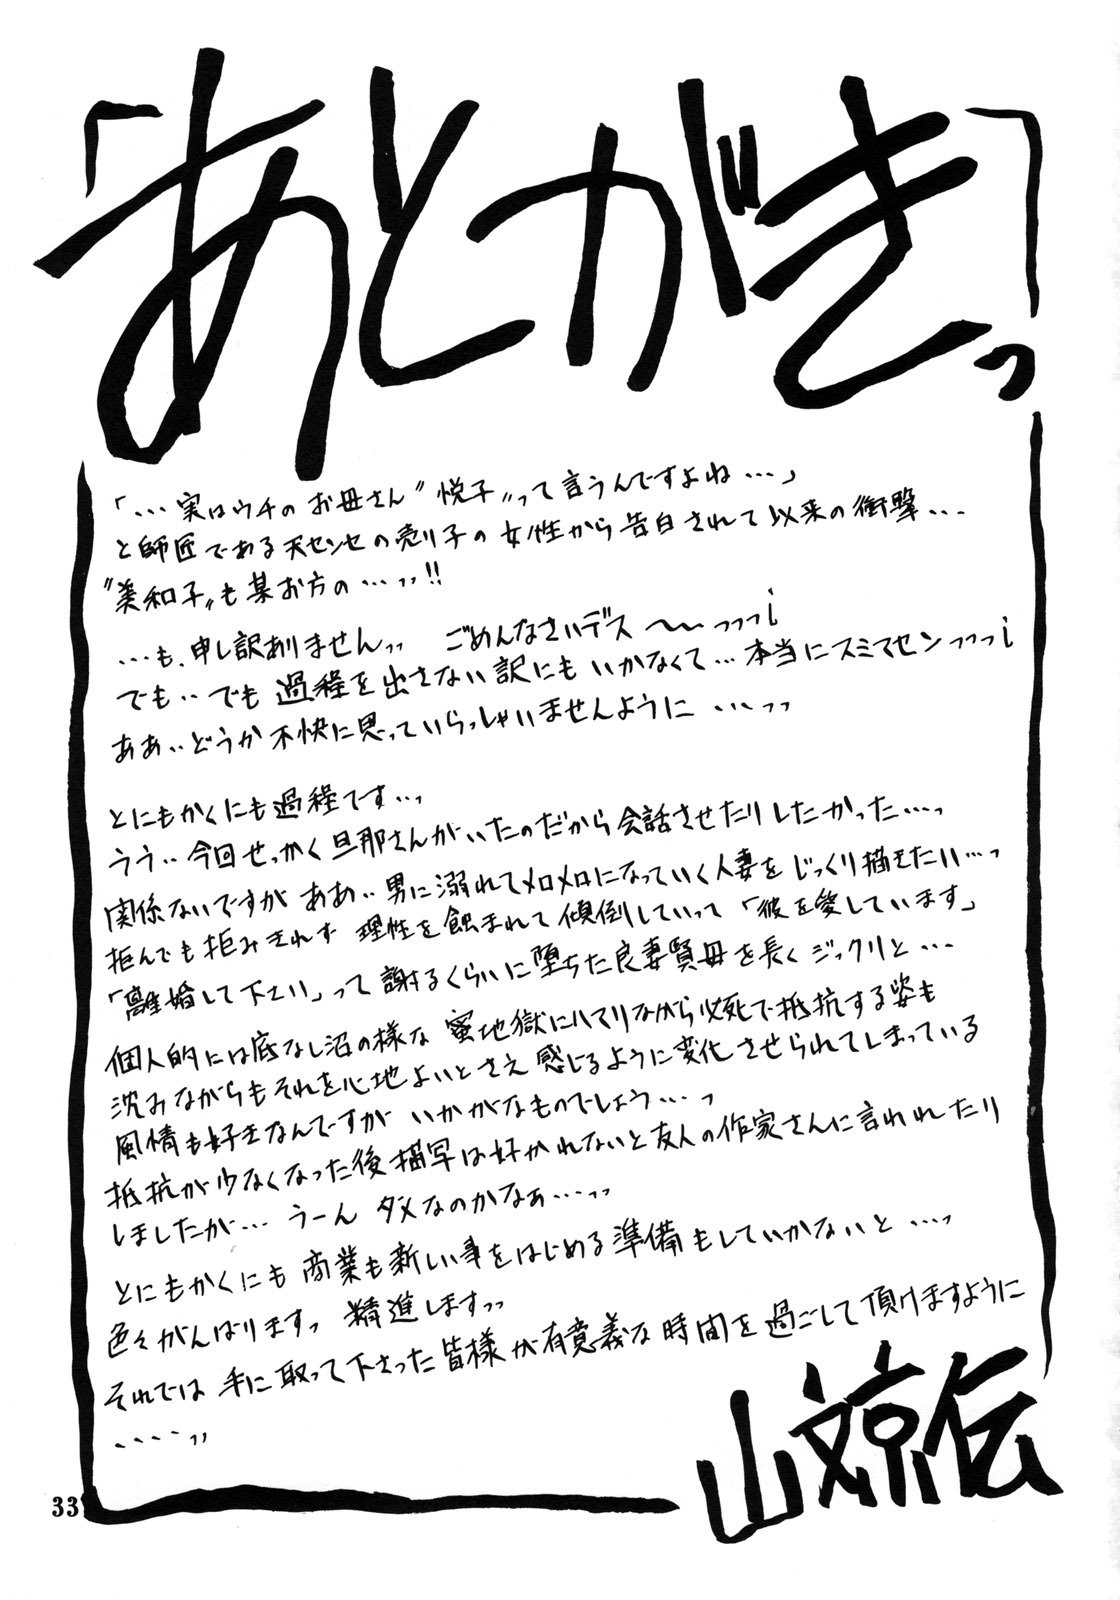 「あとがきっ」
「…実はウチのお母さん〝悦子〟って言うんですよね…」
と師匠である天センセの売り子の女性から告白されて以来の衝撃…
〝美和子〟も某お方の…ッッ!!
…も、申し訳ありませんッ ごめんなさいデス〜〜っっっ¡
でも‥でも過程を出さない訳にもいかなくて…本当にスミマセンっっっ¡
ああ‥どうか不快に思っていらっしゃいませんように…っっ
とにもかくにも過程です…っ
うう‥今回せっかく旦那さんがいたのだから会話させたりしたかった…っ
関係ないですが ああ‥男に溺れてメロメロになっていく人妻をじっくり描きたい…っ
拒んでも拒みきれず 理性を蝕まれて傾倒していって「彼を愛しています」
「離婚して下さい」って謝るくらいに堕ちた良妻賢母を長くジックリと…
個人的には底なし沼の様な蜜地獄にハマリながら必死で抵抗する姿も
沈みながらもそれを心地よいとさえ感じるように変化させられてしまっている
風情も好きなんですが いかがなものでしょう…っ
抵抗が少なくなった後描写は好かれないと友人の作家さんに言われたり
しましたが… うーん ダメなのかなぁ…っっ
とにもかくにも 商業も新しい事をはじめる準備もしていかないと…っ
色々がんばりますっ 精進しますっっ
それでは 手に取って下さった皆様が有意義な時間を過ごして頂けますように
‥‥‥っっ
山文京伝
33